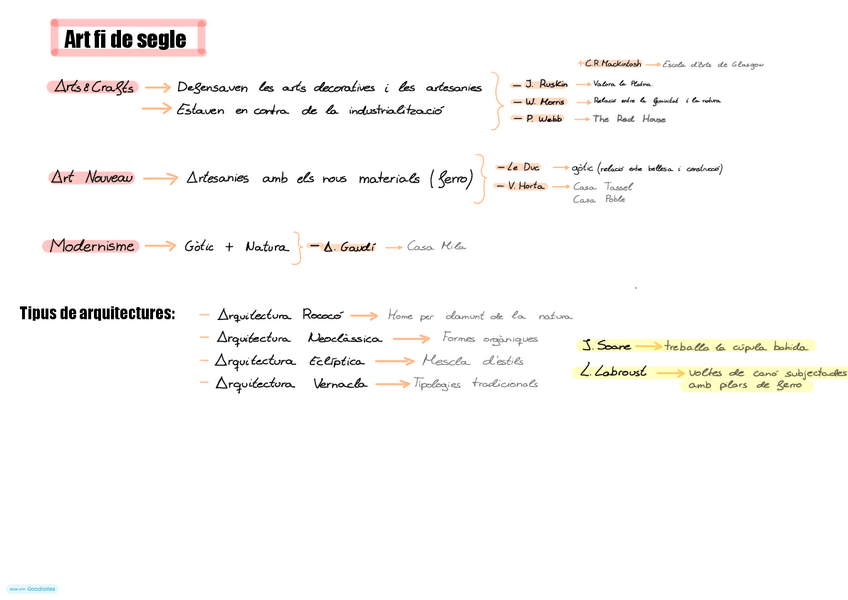 Art fi de segle
+ C.R. Mackintosh → Escola d'Arts de Glasgow
Arts & Crafts → Defensaven les arts decoratives i les artesanies
→ Estaven en contra de la industrialització
- J. Ruskin → Valora la
- W. Morris → Relació entre la i la natura
- P. Webb → The Red House
Art Nouveau → Artesanies amb els nous materials (ferro)
- Le Duc → gòtic (relació entre bellesa i construcció)
- V. Horta → Casa Tassel
Casa Poble
Modernisme → Gòtic + Natura - A. Gaudí → Casa Mila
Tipus de arquitectures:
- Arquitectura Rococó → Home per damunt de la natura
- Arquitectura Neoclàssica → Formes orgàniques
- Arquitectura Eclíptica → Mescla d'estils
- Arquitectura Vernacla → Tipologies tradicionals
J. Soane → treballa la cúpula bohida
L. Labroust → voltes de canó subjectades
amb pilars de ferro
Made with Goodnotes